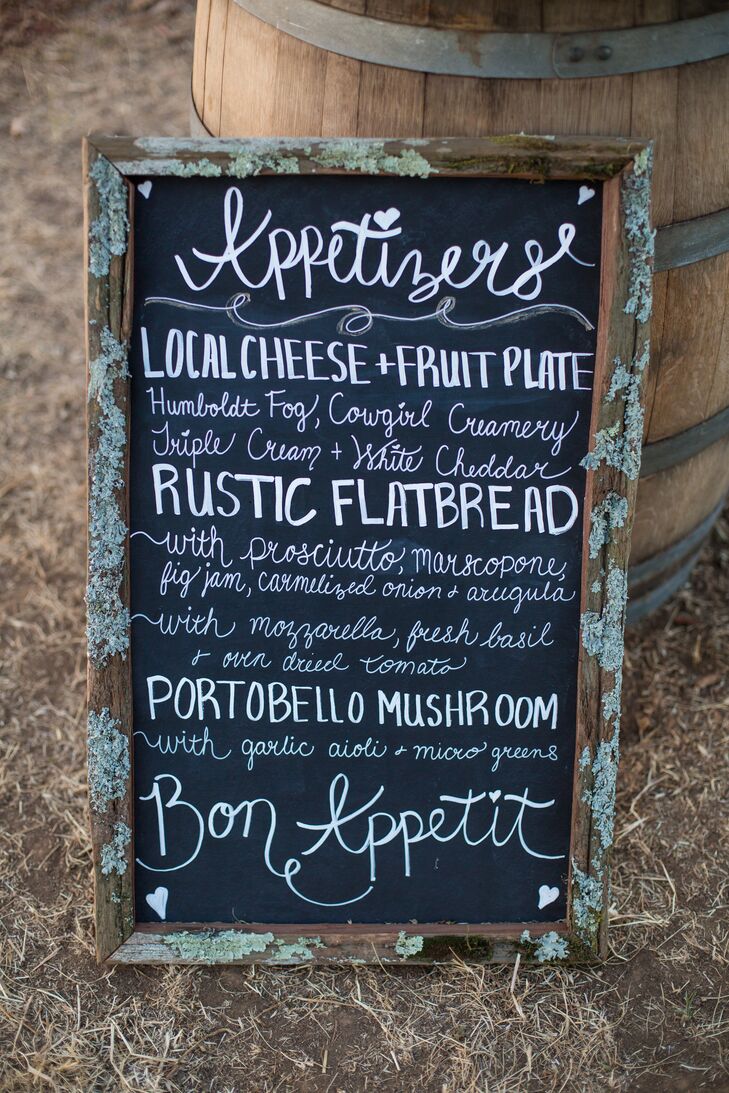 Appetizers
LOCAL CHEESE + FRUIT PLATE
Humboldt Fog, Cowgirl Creamery
Triple Cream + White Cheddar
RUSTIC FLATBREAD
with prosciutto, marscopone,
fig jam, carmelized onion + arugula
with mozzarella, fresh basil
+ oven dried tomato
PORTOBELLO MUSHROOM
with garlic aioli + micro greens
Bon Appetit